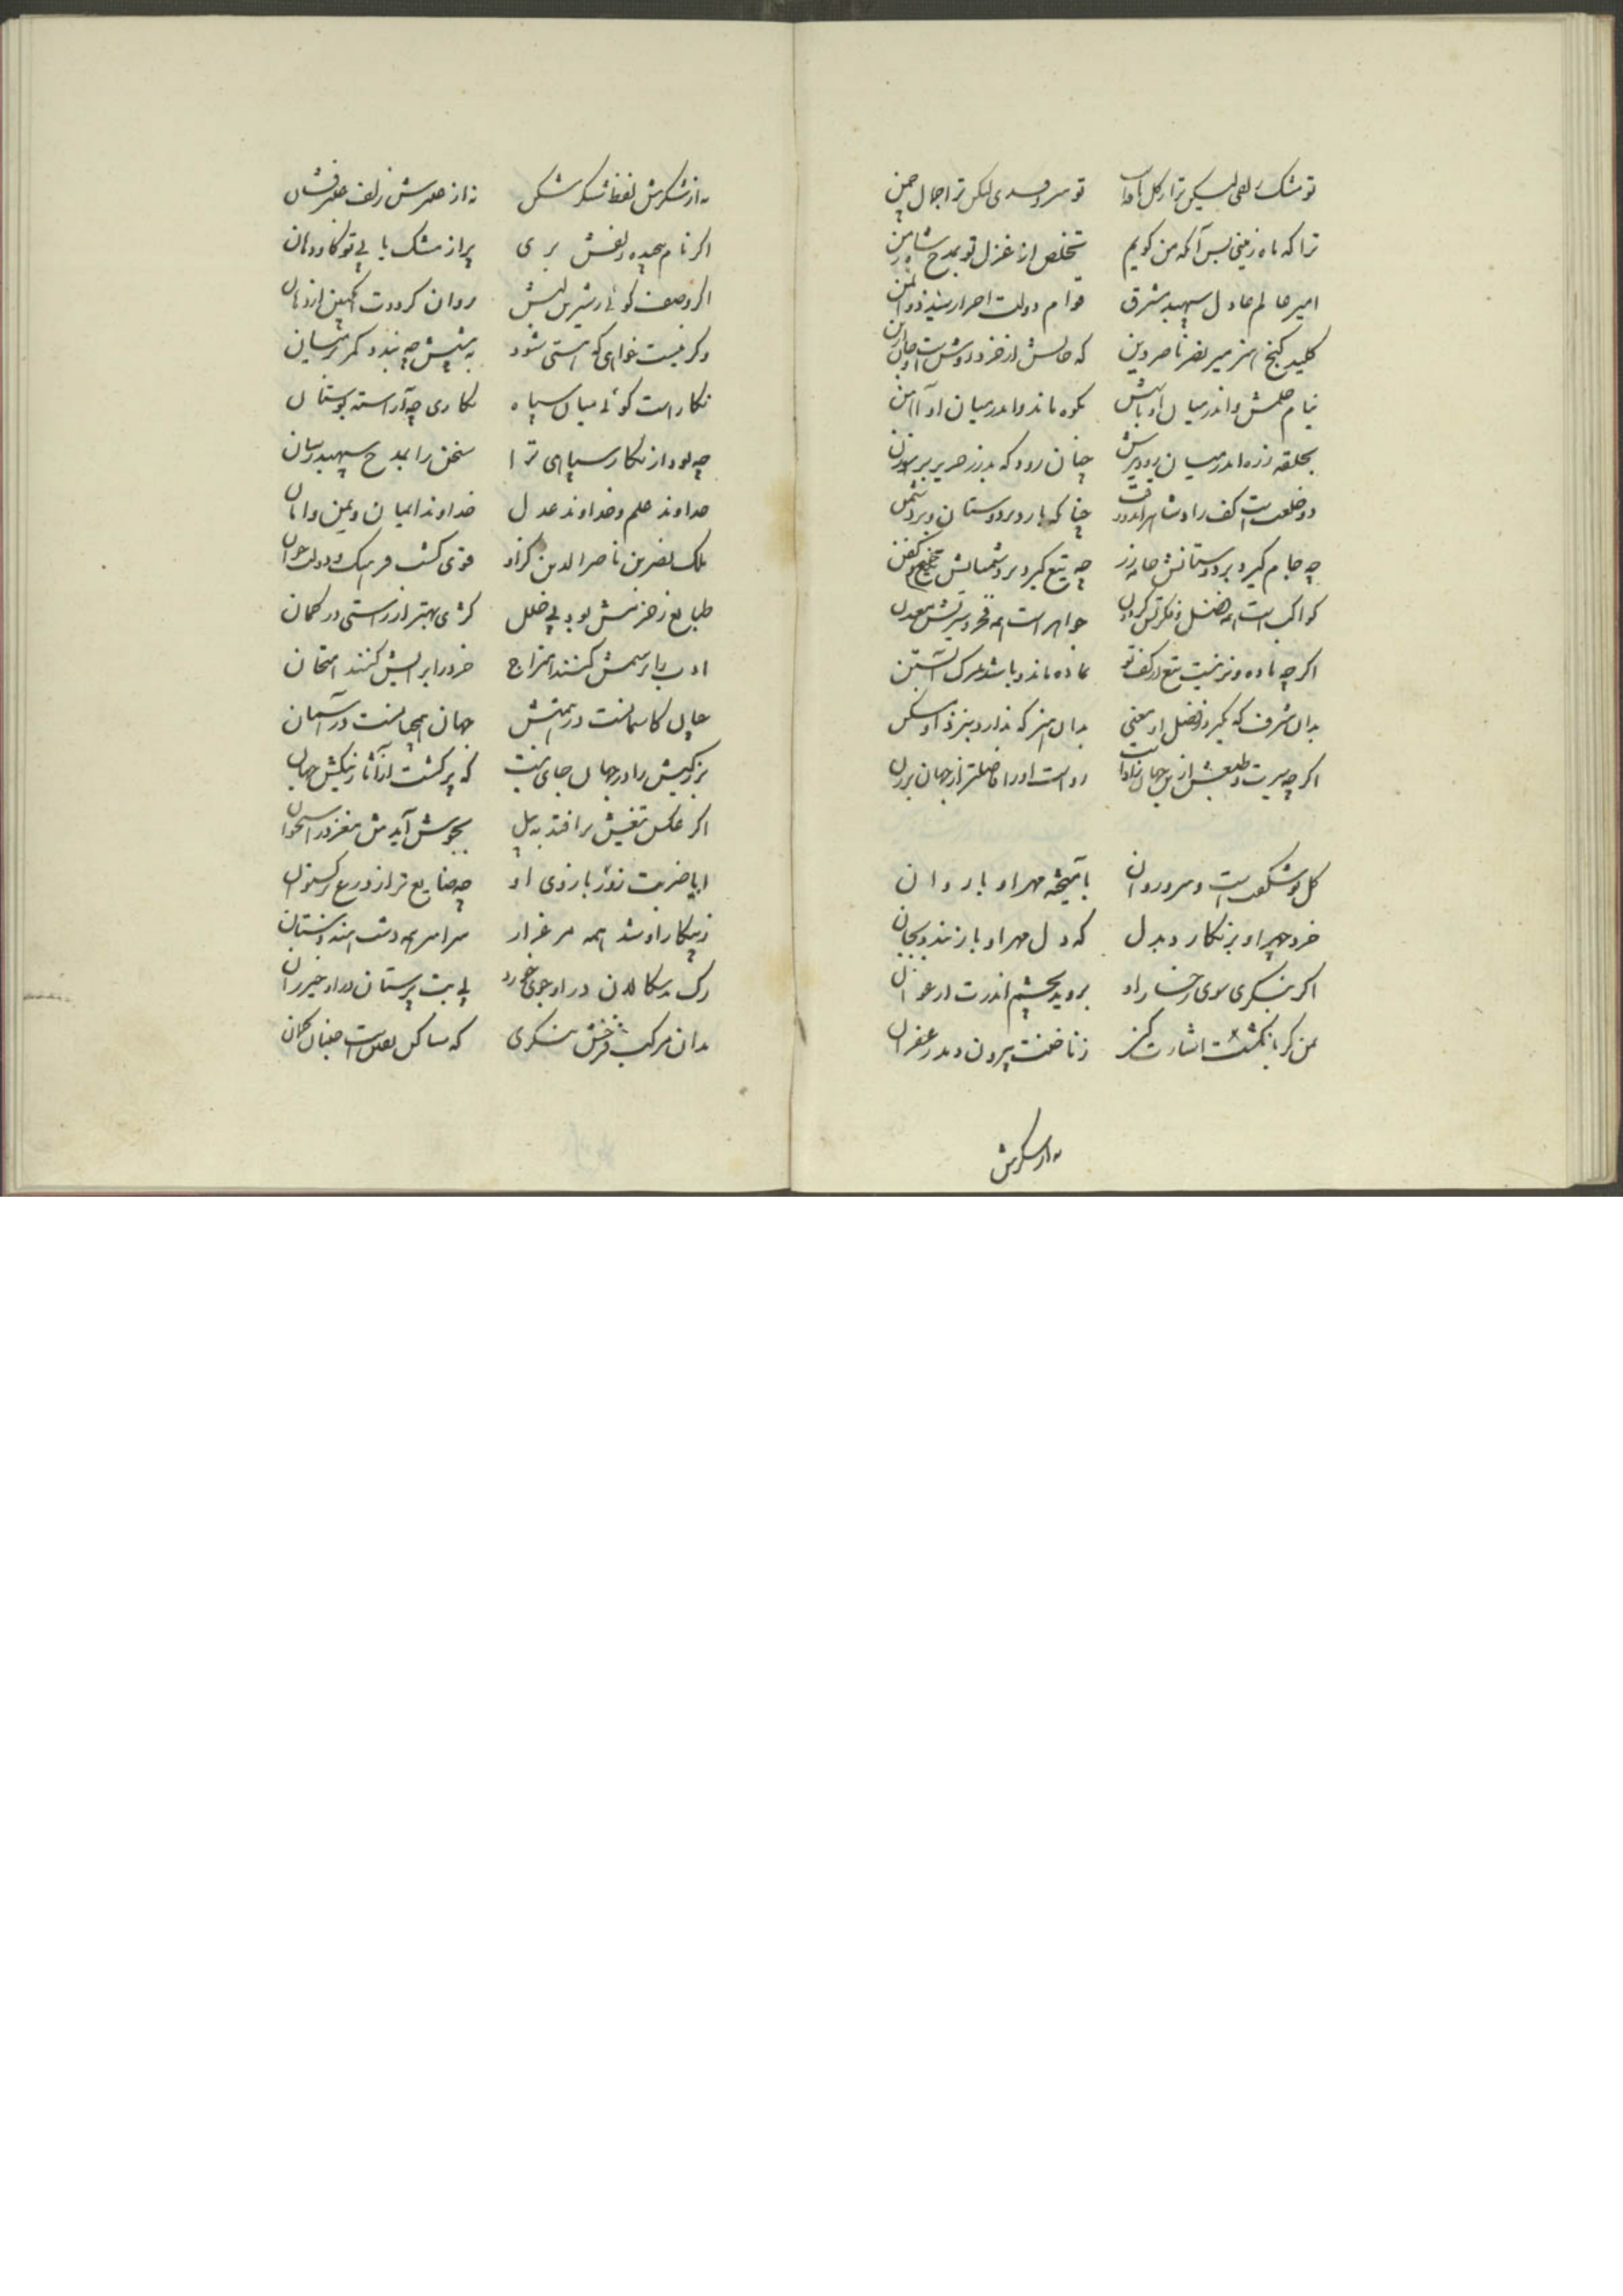 تو مشک زلفی لیکن ترا ز گل تو سرو قدی لکن ترا جمال چمن
ترا که ماه زمینی بس آنکه من کویم تخلص از غزل تو بمدح شاه زمن
امیر عالم عادل سپهبد مشرق قوام دولت احرار سید ذوالمن
کلید کنج هنر میر نصر ناصر دین که جانش از خرد و دانش است
نیام حلمش و اندر میان او کوه ماند و اندر میان او آهن
بحلقه زره اندر میان چنان رود که بدرز حریر بر سوزن
دو خلعت است کف راد شاه را چنانکه بار دبر دوستان و بر دشمن
چه جام کیرد بر دوستانش جامه زر چه تیغ کیرد بر دشمنانش کفن
کواکب است همه فضل و فکرتش کردون جواهر است همه فخر و سیرتش معدن
اگر چه ماده و نر نیست تیغ در کف تو ماده ماند و باشد بمرک آبستن
بدان شرف که نکیرد ز فضل او معنی بدان هنر که ندارد بنزد او مسکن
اگر چه سیرت و طبعش ازین جهان زادست رواست او را فاضلتر از جهان بودن
کل نو شکفت است و سرو روان بآمیخته مهر او با روان
خرد چهر او بر نکارد بدل که دل مهر او باز بندد بجان
اگر بنکری سوی رخسار او بروید بچشم اندرت ارغوان
بمن کر بانکشت اشارت کنی ز ناخنت بیرون دمد زعفران
نه از شکرش
نه از شکرش لفظ شکر شکن نه از عنبرش زلف عنبر فشان
اگر نام پیچیده زلفش بری پر از مشک یابی تو کام و دهان
اگر وصف کوئی ز شیرین لبش روان کرددت انکبین از دهان
وکر نیست خواهی که هستی شود به پیشش چه بندد کمر بر میان
نکار است کوئی میان سپاه نکاری چه آراسته بوستان
چه بود از نکار سپاهی ترا سخن را بمدح سپهبد رسان
خداوند علم و خداوند عدل خداوند ایمان و یمن و امان
ملک نصر بن ناصر الدین کزاو قوی کشت فرهنک و دولت جوان
طبایع ز حزمش بود بی خلل کژی بهتر از راستی در کمان
ادب را برسمش کنند امتزاج خرد را برایش کنند امتحان
چنان کاسمانست در همتش جهان همچنانست در آسمان
بزرکیش را در جهان جای نیست که پر کشت از آثار نیکش جهان
اگر عکس تیغش برافتد به پیل بجوش آیدش مغز در استخوان
ابا ضربت زور بازوی او چه ضایع تر از درع و برکستوان
ز پیکار او شد همه مرغزار سراسر همه دشت هندوستان
رک بدسکالان در او جوی خورد پی بت پرستان در او خیزران
بدان مرکب فرخش بنکری که ساکن